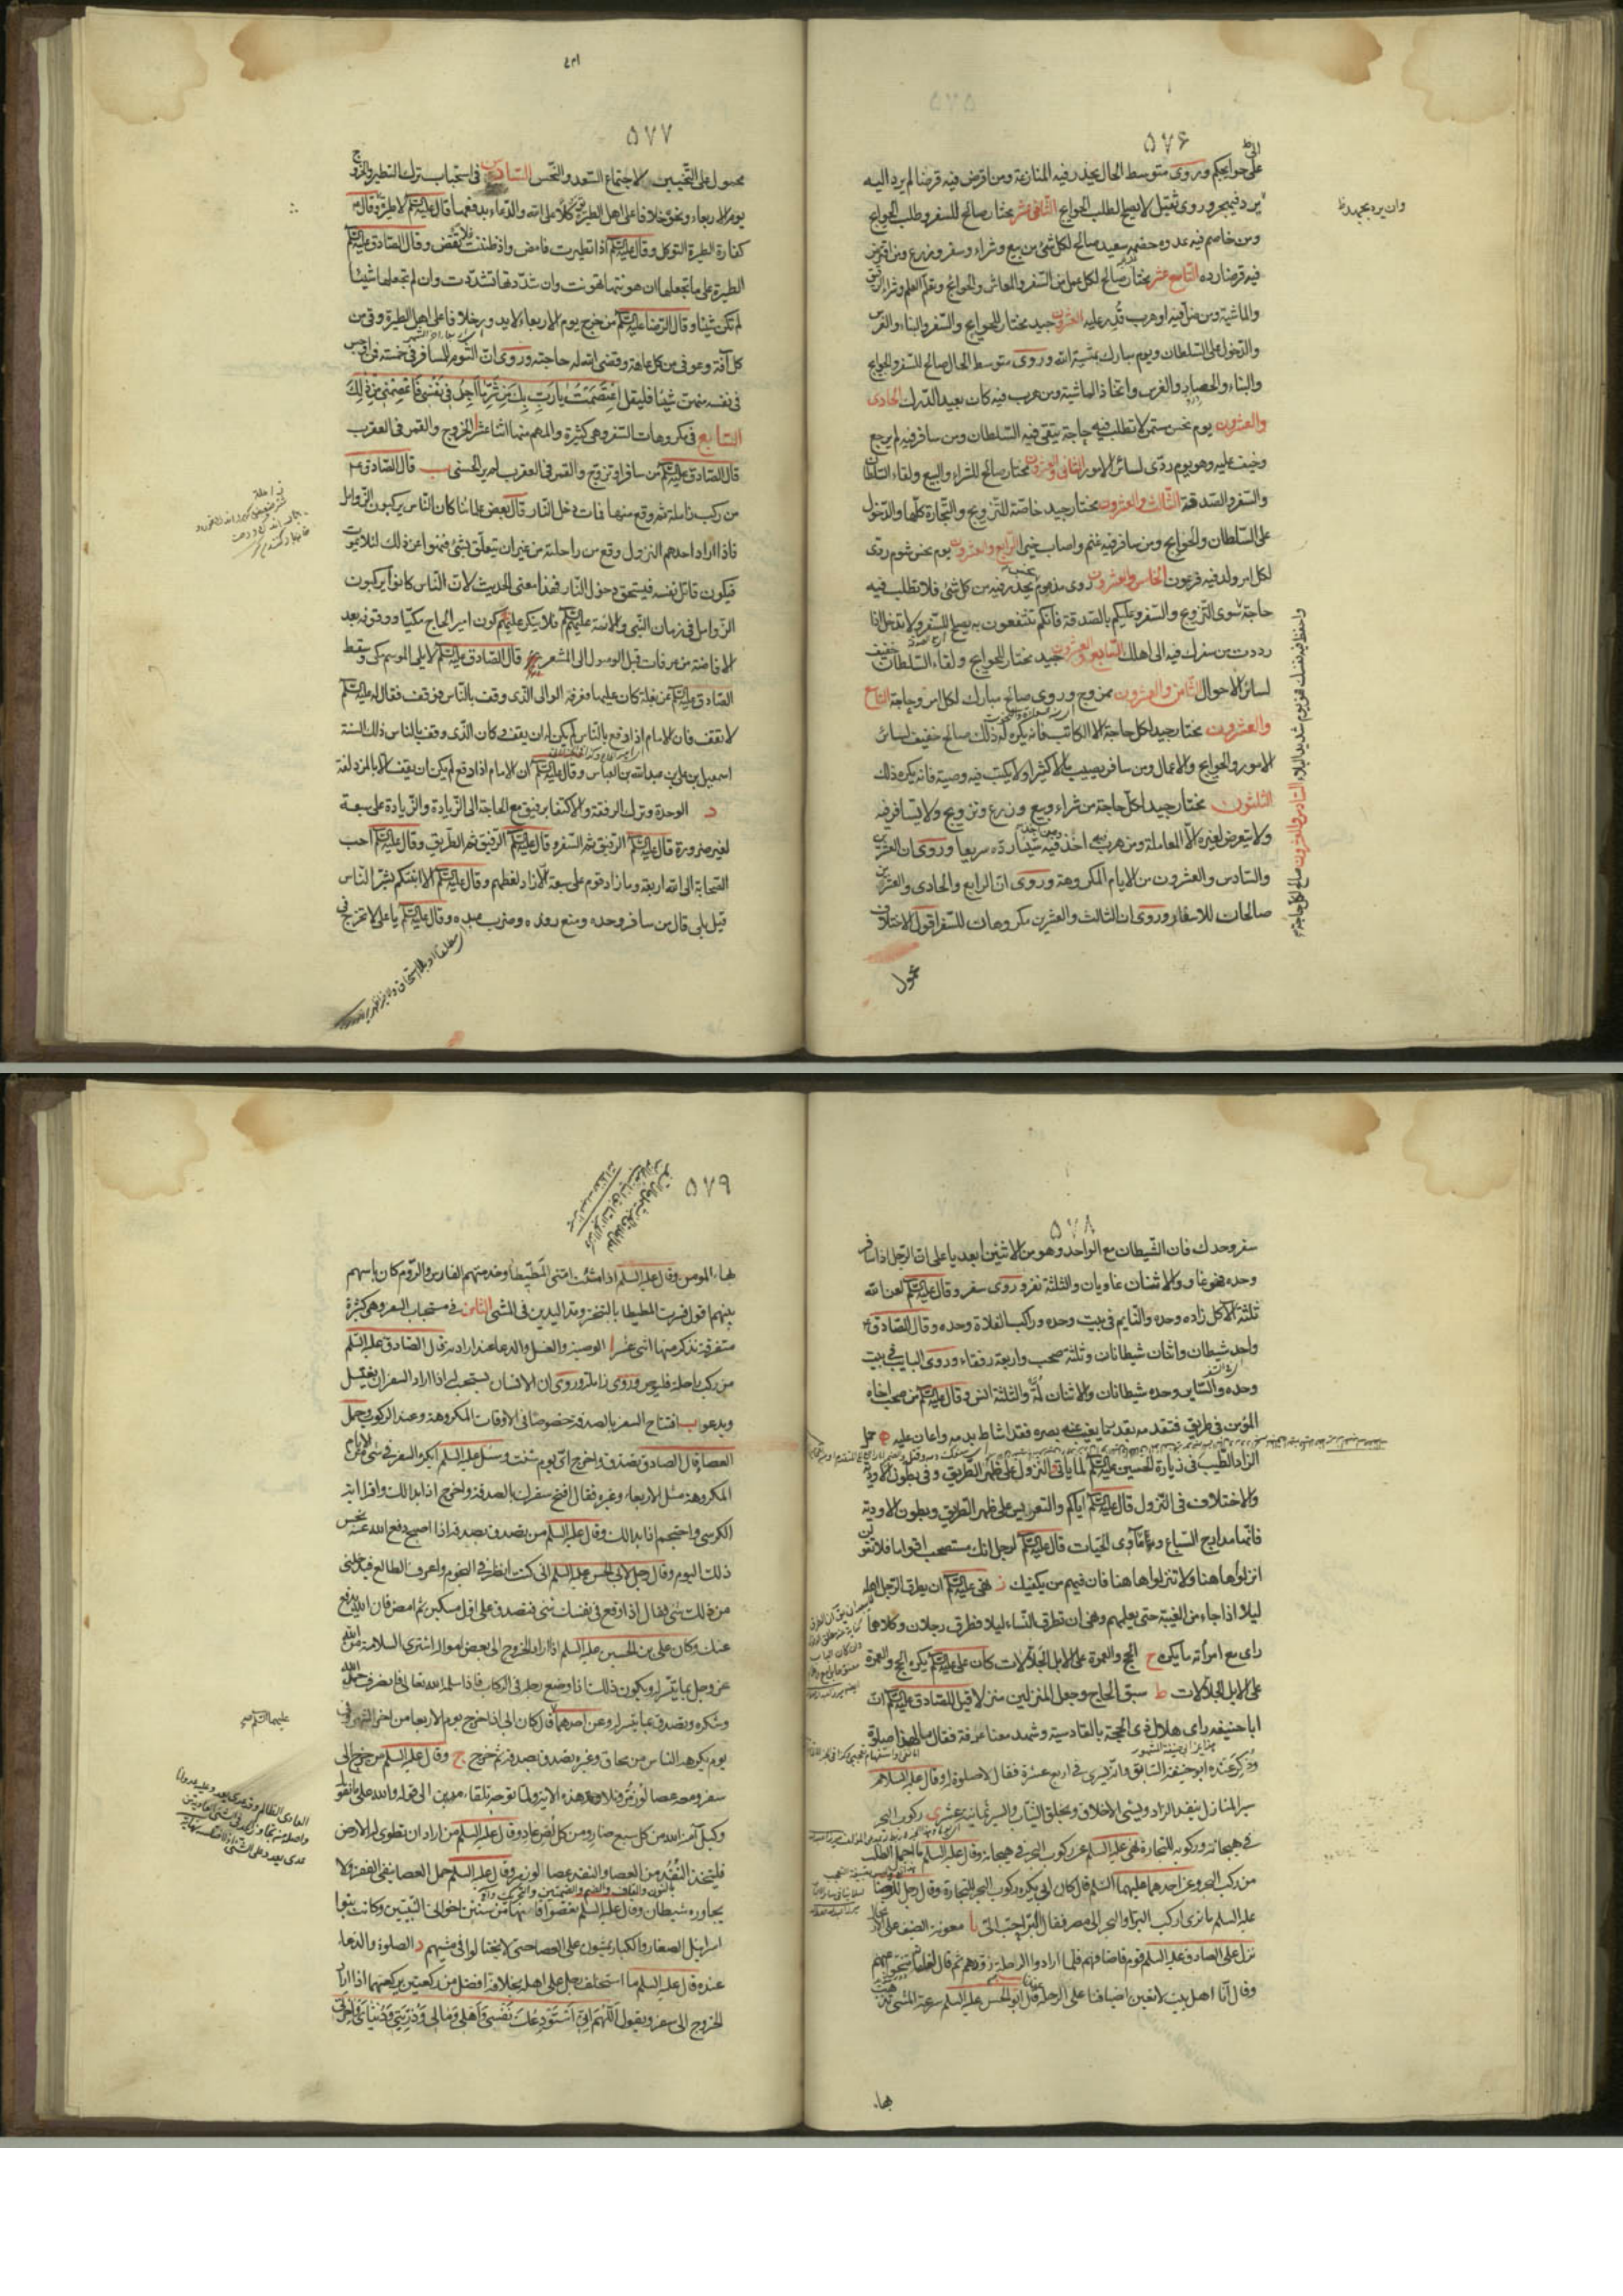 ۵۷۶
على حوايجكم وروى متوسط الحال يحذر فيه المنازعة ومن اقرض فيه قرضا لم يرد اليه
الثامن عشر مختار صالح للسفر وطلب الحوايج
ومن خاصم فيه عدوه خصمه سعيد صالح لكل شئ من بيع وشراء وسفر وزرع ومن اقترض
فيه قرضا رده التاسع عشر مختار صالح لكل عمل من السفر والمعاش والحوايج وتعلم العلم وشراء الرقيق
والماشية ومن ضل فيه او هرب قدر عليه العشرون جيد مختار للحوايج والسفر والبناء والغرس
والدخول على السلطان ويوم مبارك بمشية الله وروى متوسط الحال صالح للسفر والحوايج
والبناء والحصاد والغرس واتخاذ الماشية ومن هرب فيه كان بعيد الدرك الحادى
والعشرون يوم نحس مستمر لا تطلب فيه حاجة يتقى فيه السلطان ومن سافر فيه لم يرجع
وخيف عليه وهو يوم ردى لسائر الامور الثانى والعشرون مختار صالح للشراء والبيع ولقاء السلطان
والسفر والصدقة الثالث والعشرون مختار جيد خاصة للتزويج والتجارة كلها والدخول
على السلطان والحوايج ومن سافر فيه غنم واصاب خيرا الرابع والعشرون يوم نحس شوم ردى
لكل امر ولد فيه فرعون الخامس والعشرون روى مذموم يحذر فيه من كل شئ فلا تطلب فيه
حاجة سوى التزويج والسفر وعليكم بالصدقة فانكم تنتفعون به يصلح للسفر ولا تدخل اذا
رددت من سفرك فيه الى اهلك السابع والعشرون جيد مختار للحوايج ولقاء السلطان خفيف
لسائر الاحوال الثامن والعشرون ممزوج وروى صالح مبارك لكل امر وحاجة التاسع
والعشرون مختار جيد لكل حاجة الا الكاتب فانه يكره له ذلك صالح خفيف لسائر
الامور والحوايج والاعمال ومن سافر يصيب مالا كثيرا ولا يكتب فيه وصية فانه يكره ذلك
الثلثون مختار جيد لكل حاجة من شراء وبيع وزرع وتزويج ولا يسافر فيه
ولا يتعرض لغيره الا المعاملة ومن هرب فيه اخذ شيئا رده سريعا وروى ان العشرين
والسادس والعشرون من الايام المكروهة وروى ان الرابع والحادى والعشرين
صالحات للاسفار وروى ان الثالث والعشرين مكروهات للسفر اقول الاختلاف
محمول
وان يرد بجهد
۵۷۷
محمول على التخيير لاجتماع السعد والنحس السادس فى استحباب ترك التطير والخروج
يوم الاربعاء ونحوه خلافا على اهل الطيرة وتوكلا على الله والدعاء بدفعها قال عليه السلم لا طيرة وقال
كفارة الطيرة التوكل وقال عليه السلم اذا تطيرت فامض واذا ظننت فلا تقض وقال الصادق عليه السلم
الطيرة على ما تجعلها ان هونتها تهونت وان شددتها تشددت وان لم تجعلها شيئا
لم تكن شيئا وقال الرضا عليه السلم من خرج يوم الاربعاء لا يدور خلافا على اهل الطيرة وقى من
كل آفة وعوفى من كل عاهة وقضى الله له حاجته وروى ان الشوم للمسافر فى خمسة فمن اوجس
فى نفسه منهن شيئا فليقل اعتصمت يا رب بك من شر ما اجد فى نفسى فاعصمنى من ذلك
السابع فى مكروهات السفر وهى كثيرة والمهم منها اثنا عشر ا الخروج والقمر فى العقرب
قال الصادق عليه السلم من سافر او تزوج والقمر فى العقرب لم ير الحسنى ب قال الصادق
من ركب زاملة ثم وقع منها فمات دخل النار قال بعض علمائنا كان الناس يركبون الزوامل
فاذا اراد احدهم النزول وقع من راحلته من غير ان يتعلق بشئ فنهوا عن ذلك لئلا يموت
فيكون قاتل نفسه فيستحق دخول النار فهذا معنى الحديث لان الناس كانوا يركبون
الزوامل فى زمان النبى والائمة عليهم السلم فلا ينكر عليهم كون امير الحاج مكيا ووقوفه بعد
الافاضة من عرفات قبل الوصول الى المشعر قال الصادق عليه السلم لا يلى الموسم مكى وسقط
الصادق عليه السلم عن بغلة كان عليها فعرفه الوالى الذى وقف بالناس فوقف فقال له عليه السلم
لا تقف فان الامام اذا دفع بالناس لم يكن له ان يقف وكان الذى وقف بالناس ذلك السنة
اسمعيل بن على بن عبدالله بن العباس وقال عليه السلم ان الامام اذا دفع لم يكن ان يقف الا بالمزدلفة
د الوحدة وترك الرفقة والاكتفاء برفيق مع الحاجة الى الزيادة والزيادة على سبعة
لغير ضرورة قال عليه السلم الرفيق ثم السفر وقال عليه السلم الرفيق ثم الطريق وقال عليه السلم احب
الصحابة الى الله اربعة وما زاد قوم على سبعة الا زاد لغطهم وقال عليه السلم الا انبئكم بشر الناس
قيل بلى قال من سافر وحده ومنع رفده وضرب عبده وقال عليه السلم يا على لا تخرج فى
۵۷۸
سفر وحدك فان الشيطان مع الواحد وهو من الاثنين ابعد يا على ان الرجل اذا سافر
وحده فهو غاو والاثنان غاويان والثلثة نفر وروى سفر وقال عليه السلم لعن الله
ثلثة الآكل زاده وحده والنايم فى بيت وحده وراكب الفلاة وحده وقال الصادق
واحد شيطان واثنان شيطانان وثلثة صحب واربعة رفقاء وروى البايت فى بيت
وحده والساير وحده شيطانان والاثنان لمة والثلثة انس وقال عليه السلم من صحب اخاه
المؤمن فى طريق فتقدمه بقدر ما يغيب عنه بصره فقد اشاط بدمه واعان عليه ه حمل
الزاد الطيب فى زيارة الحسين عليه السلم لما ياتى و النزول على ظهر الطريق وفى بطون الاودية
والاختلاف فى النزول قال عليه السلم اياكم والتعريس على ظهر الطريق وبطون الاودية
فانها مدارج السباع وماوى الحيات قال عليه السلم لرجل انك ستصحب اقواما فلا تقولن
انزلوا ها هنا ولا تنزلوا ها هنا فان فيهم من يكفيك ز نهى عليه السلم ان يطرق الرجل اهله
ليلا اذا جاء من الغيبة حتى يعلمهم ونهى ان تطرق النساء ليلا فطرق رجلان وكلاهما
راى مع امرأته ما يكره ح الحج والعمرة على الابل الجلالات كان على عليه السلم يكره الحج والعمرة
على الابل الجلالات ط سبق الحاج وجعل المنزلين منزلا قيل للصادق عليه السلم ان
ابا حنيفه راى هلال ذى الحجة بالقادسية وشهد معنا عرفة فقال ما لهذا صلوة
وذكر عنده ابو حنيفة السابق وانه يسرى فى اربع عشرة فقال لا صلوة له وقال عليه السلام
سير المنازل ينفد الزاد ويسئ الاخلاق ويخلق الثياب والسير ثمانية عشر ى ركوب البحر
فى هيجانه وركوبه للتجارة نهى عليه السلم عن ركوب البحر فى هيجانه وقال عليه السلم ما اجمل الطلب
من ركب البحر وعن احدهما عليهما السلم قال كان ابى يكره ركوب البحر للتجارة وقال رجل للرضا
عليه السلم ما ترى اركب البر او البحر الى مصر فقال البر احب الى يا معونة الضيف على الارتحال
نزل على الصادق عليه السلم قوم فاضافهم فلما ارادوا الرحلة زودهم ثم قال لغلمانه تنحوا عنهم
وقال انا اهل بيت لا نعين اضيافنا على الرحلة قال ابو الحسن عليه السلم سرعة المشى تذهب
بهاء
۵۷۹
بهاء المومن وقال عليه السلم اذا مشت امتى المطيطا وخدمتهم الفارس والروم كان باسهم
بينهم اقول فسرت المطيطا بالتبختر ومد اليدين فى المشى الثامن فى مستحبات السفر وهى كثيرة
متفرقة نذكر منها اثنى عشر ا الوصية والغسل والدعاء عند ارادته قال الصادق عليه السلم
من ركب راحلة فليوص وروى زاملة وروى ان الانسان يستحب له اذا اراد السفر ان يغتسل
ويدعو ب افتتاح السفر بالصدقة خصوصا فى الاوقات المكروهة وعند الركوب وحمل
العصا قال الصادق تصدق واخرج اى يوم شئت وسئل عليه السلم ايكره السفر فى شئ من الايام
المكروهة مثل الاربعاء وغيره فقال افتح سفرك بالصدقة واخرج اذا بدا لك واقرا اية
الكرسى واحتجم اذا بدا لك وقال عليه السلم من تصدق بصدقة اذا اصبح دفع الله عنه نحس
ذلك اليوم وقال رجل لابى الحسن عليه السلم انى كنت انظر فى النجوم واعرف الطالع فيدخلنى
من ذلك شئ فقال اذا وقع فى نفسك شئ فتصدق على اول مسكين ثم امض فان الله يدفع
عنك وكان على بن الحسين عليه السلم اذا اراد الخروج الى بعض امواله اشترى السلامة من الله
عز وجل بما تيسر له ويكون ذلك اذا وضع رجله فى الركاب فاذا سلمه الله تعالى فانصرف حمد الله
وشكره وتصدق بما تيسر له وعن احدهما قال كان ابى اذا خرج يوم الاربعا من اخر الشهر وفى
يوم يكرهه الناس من محاق وغيره تصدق بصدقة ثم خرج ج وقال عليه السلم من خرج الى
سفر ومعه عصا لوز مر وتلا هذه الاية ولما توجه تلقاء مدين الى قوله والله على ما نقول
وكيل آمنه الله من كل سبع ضار ومن كل لص عاد وقال عليه السلم من اراد ان تطوى له الارض
فليتخذ النقد من العصا والنقد عصا لوز مر وقال عليه السلم حمل العصا ينفى الفقر ولا
يجاوره شيطان وقال عليه السلم تعصوا فانها من سنن اخوانى النبيين وكانت بنوا
اسرائيل الصغار والكبار يمشون على العصا حتى لا يختالوا فى مشيهم د الصلوة والدعاء
عنده قال عليه السلم ما استخلف رجل على اهله بخلافة افضل من ركعتين يركعهما اذا اراد
الخروج الى سفر ويقول اللهم انى استودعك نفسى واهلى ومالى وذريتى ودنياى واخرتى